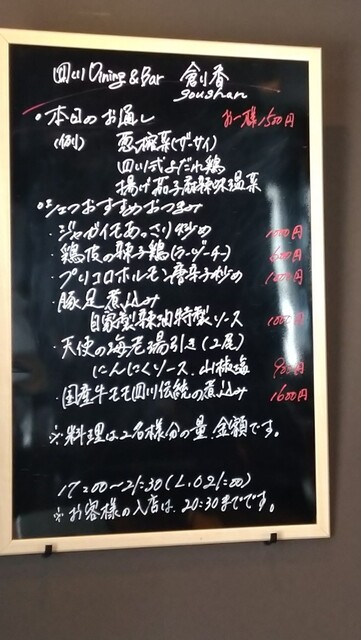 四川Dining&Bar 創香
soushan
・本日のお通し お一人様1500円
(例) 葱椀菜(ザーサイ)
四川式よだれ鶏
揚げ茄子麻辣味温菜
・シェフおすすめおつまみ
・ジャガイモあっさり炒め 円
・鶏皮の辣子鶏(ラーズーチ) 円
・プリコロホルモン唐辛子炒め 1000円
・豚足煮込み
自家製辣油特製ソース 1000円
・天使の海老湯引き(2尾)
にんにくソース、山椒塩 円
・国産牛モモ四川伝統の煮込み 1600円
※料理は2名様分の量、金額です。
17:00〜21:30(L.O21:00)
※お客様の入店は、20:30までです。